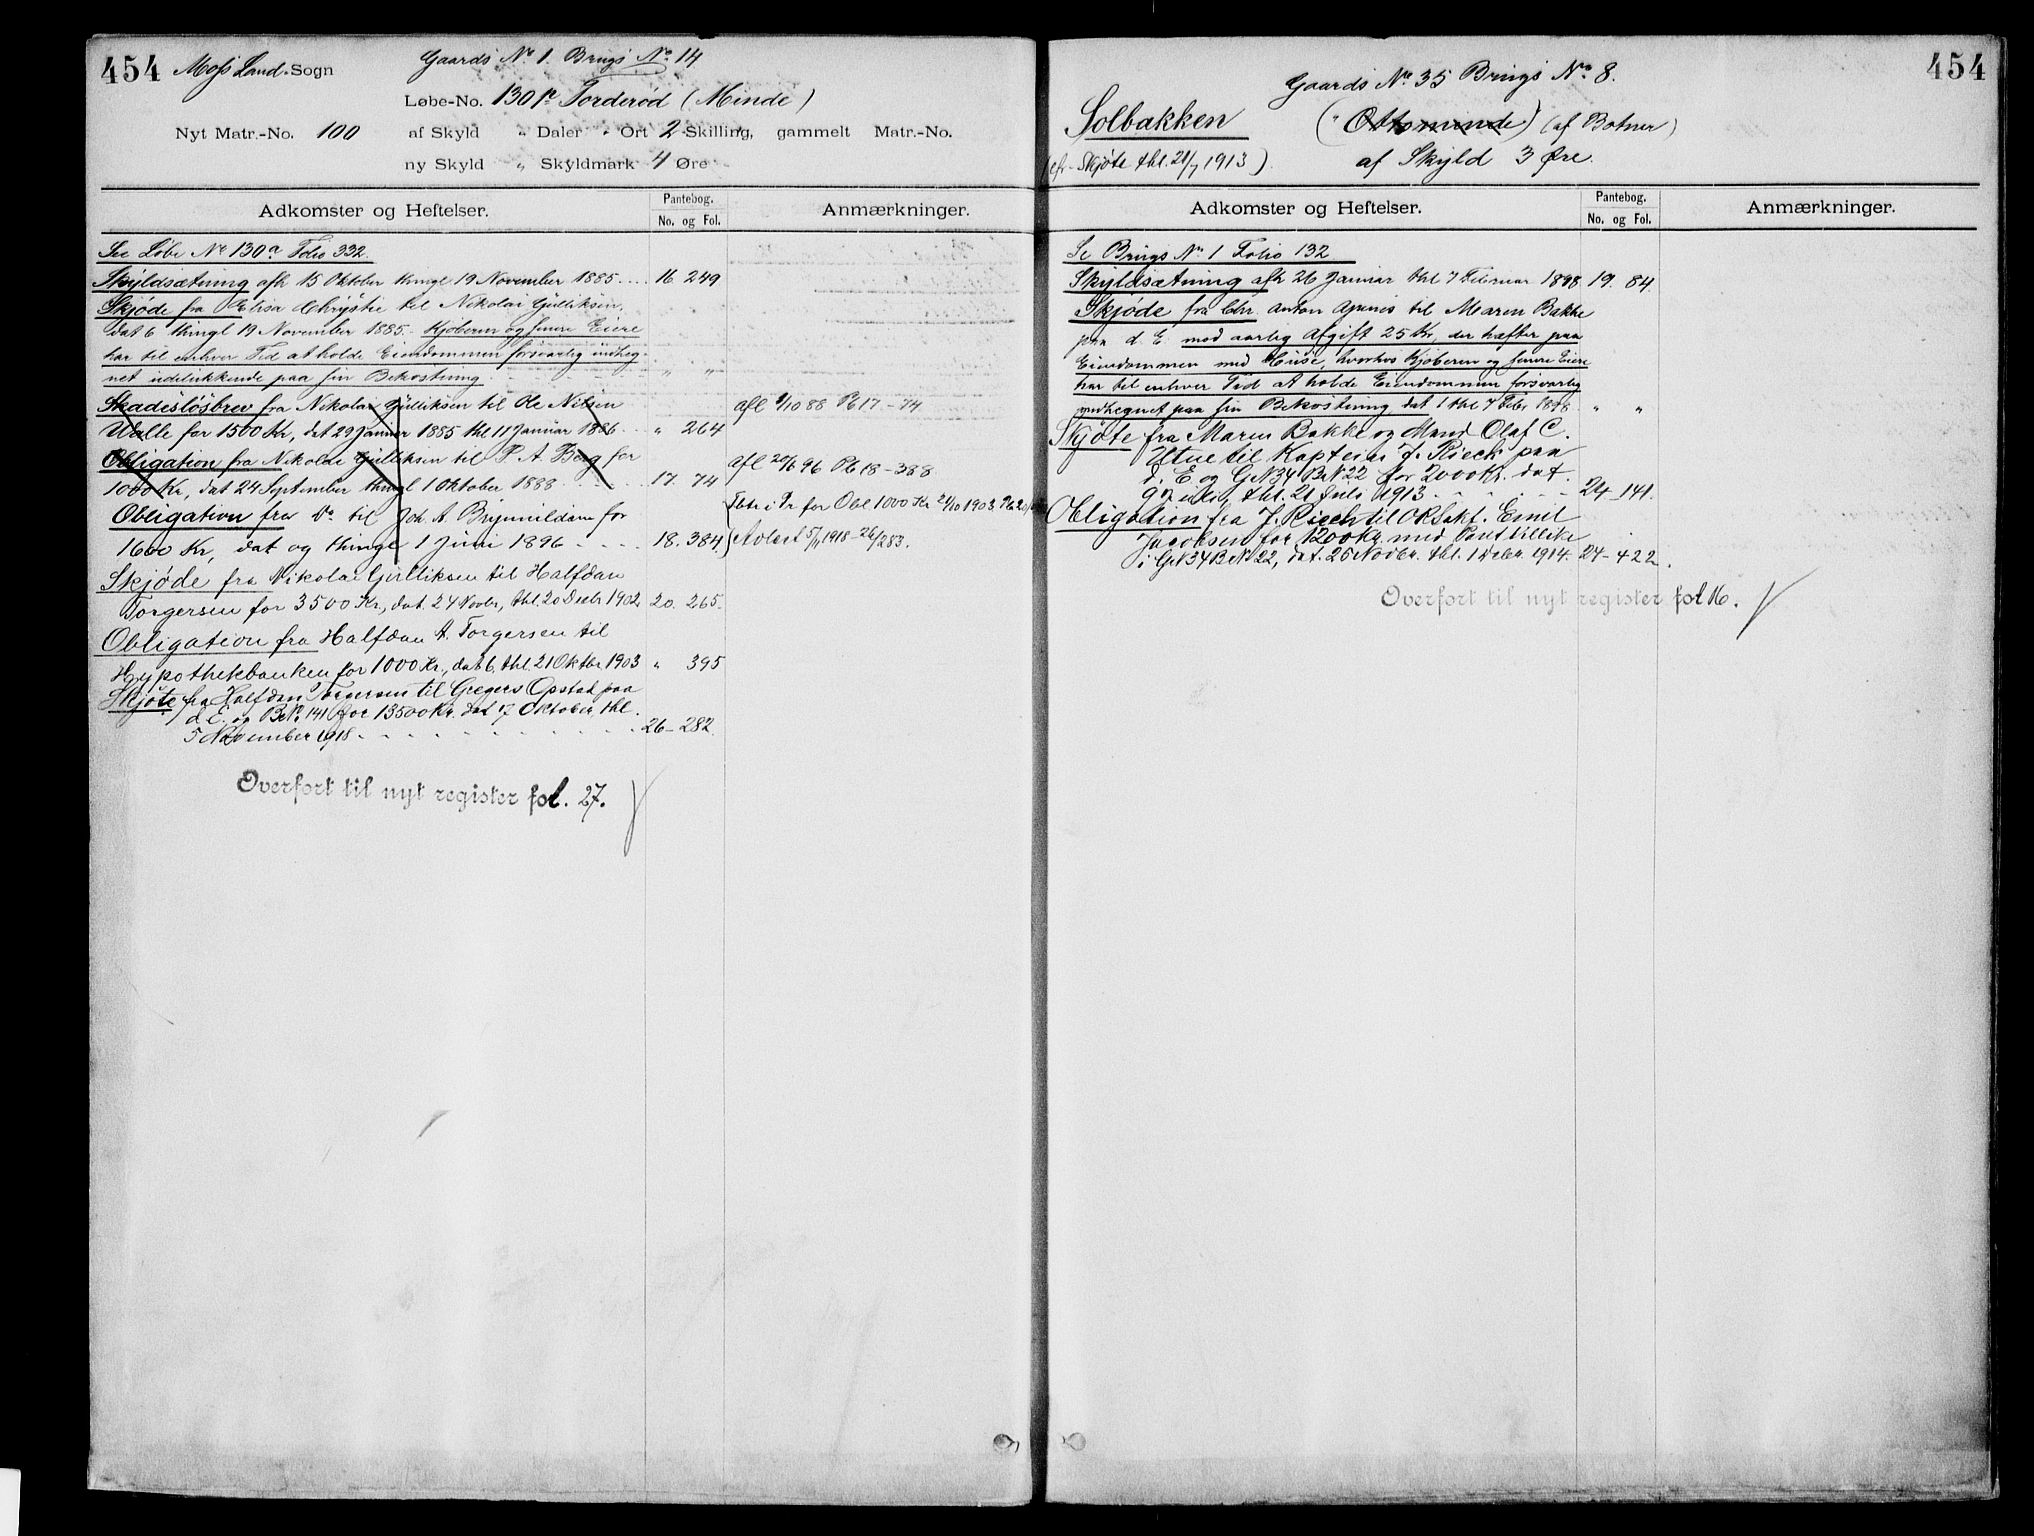 454 Moss Land-Sogn
Gaards No 1. Brugs No 14
Løbe-No. 130 Torderød (Minde)
Nyt Matr.-No. 100 af Skyld " Daler " Ort 2 Skilling, gammelt Matr.-No.
ny Skyld " Skyldmark 4 Øre
Adkomster og Heftelser. Pantebog. No. og Fol. Anmærkninger.
See Løbe No 130a Folio 332
Skyldsætning afh 15 Oktober thingl 19 November 1885 16 249
Skjøde fra Elisa Chrystie til Nikolai Gulliksen
dat 6 thingl 19 November 1885. Kjøberen og senere Eiere
har til enhver Tid at holde Eiendommen forsvarlig indheg-
net udelukkende paa sin Bekostning. " "
Skadesløsbrev fra Nikolai Gulliksen til Ole Nilsen
Walle for 1500 Kr, dat 29 Januar 1885 thl 11 Januar 1886 " 264 afl 9/10 88 Pb 17-74
Obligation fra Nikolai Gulliksen til P. A. Berg for
1000 Kr, dat 24 September thingl 1 Oktober 1888 17. 74 afl 20/6 96 Pb 18-388
Obligation fra Do til Joh. A. Brynnildsen for
1600 Kr, dat og thingl 1 Juni 1896 18. 384 Pr for Obl 1000 Kr 21/10 1903
Avlest 5/11 1918 - 26/283.
Skjøde fra Nikolai Gulliksen til Halfdan
Torgersen for 3500 Kr., dat. 24 Novbr, thl. 20 Decbr 1902 20. 265.
Obligation fra Halfdan A. Torgersen til
Hypothekbanken for 1000 Kr., dat 6. thl. 21 Oktbr 1903 " 395
Skjøte fra Halfdan Torgersen til Gregers Opstad paa
d. E. og BrNo 141 for 13500 Kr. dat 7 Oktober, thl.
5 November 1918 26-282.
Overført til nyt register fol. 27.
454
Gaards No 35 Brugs No 8.
Solbakken ("Ottominde") (af Botner)
(cfr. Skjøte thl. 21/7 1913) af Skyld 3 Øre.
Adkomster og Heftelser. Pantebog. No. og Fol. Anmærkninger.
Se Brugs No 1 Folio 132
Skyldsætning afh 26 Januar thl 7 Februar 1898 19. 84.
Skjøde fra Chr. Anton Apenes til Maren Bakke
paa d. E. mod aarlig Afgift 25 Kr, der hæfter paa
Eiendommen med Huse, hvorhos Kjøberen og senere Eiere
har til enhver Tid at holde Eiendommen forsvarlig
indhegnet paa sin Bekostning dat 1 thl 7 Febr 1898 " "
Skjøte fra Maren Bakke og Mand Olaf C.
til Kaptein J. Riech paa
d. E. og GN 34 BrN 22 for 2000 Kr. dat.
thl. 21 Juli 1913 24 141.
Obligation fra J. Riech til ORSakf. Emil
Jacobsen for 1200 Kr. med Prioritet tillike
i GN 34 BrN 22, dat. 25 Novbr. thl. 1 Decbr. 1914. 24-422.
Overført til nyt register fol 16.